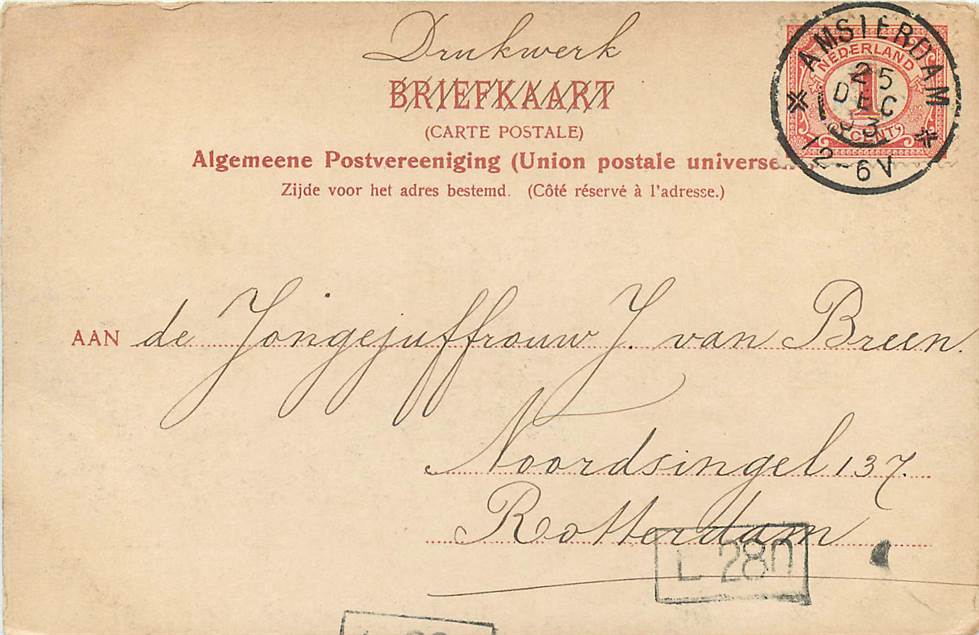 Drukwerk
BRIEFKAART
(CARTE POSTALE)
Algemeene Postvereeniging (Union postale universe
Zijde voor het adres bestemd. (Côté réservé à l'adresse.)
AMSTERDAM
25
DEC
12-6V
NEDERLAND
1
CENT
AAN de Jongejuffrouw J. van Breen.
Noordsingel 137.
Rotterdam
L 280